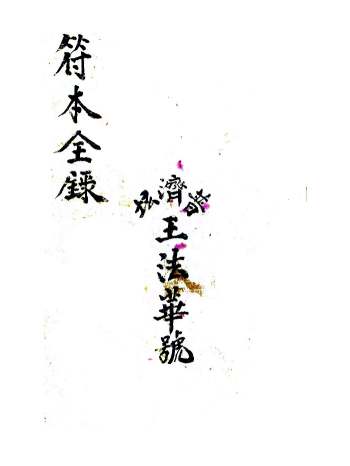 普濟弘
王法華號
符本全錄